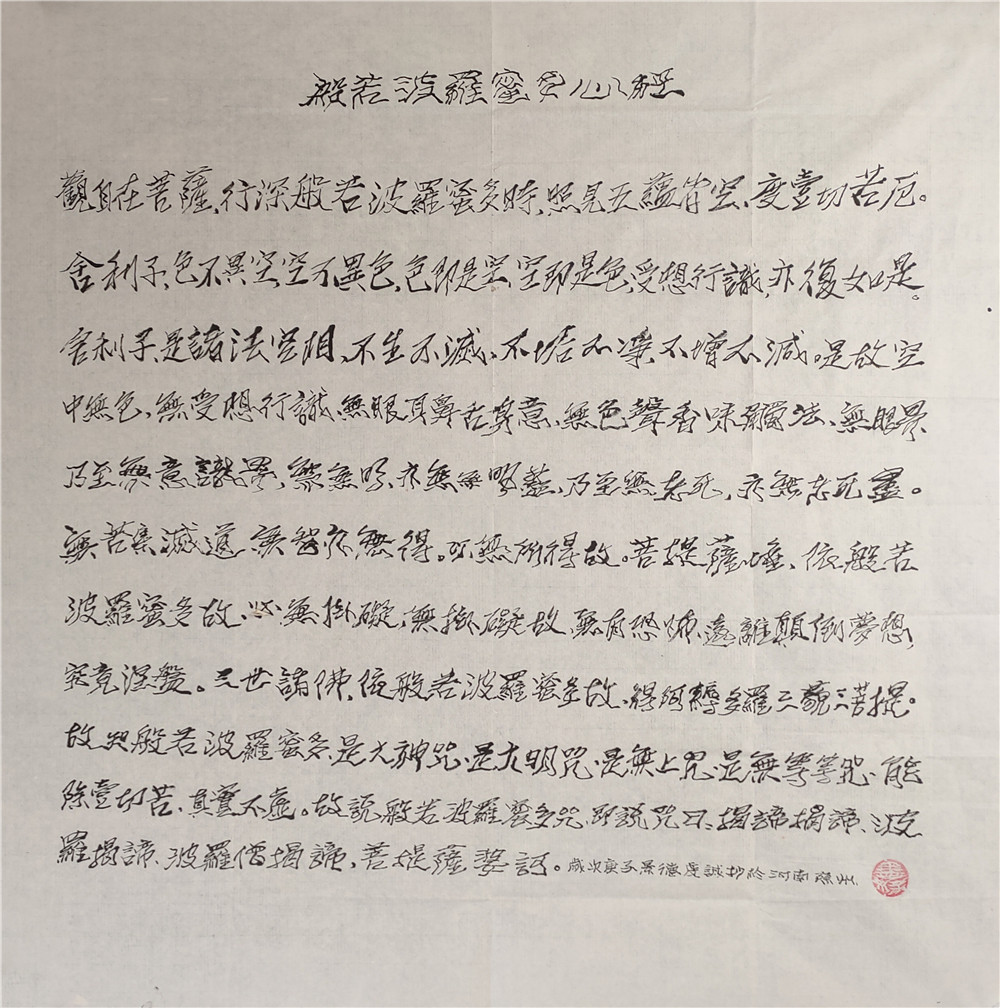 般若波羅蜜多心經
觀自在菩薩，行深般若波羅蜜多時，照見五蘊皆空、度壹切苦厄。
舍利子，色不異空，空不異色，色即是空，空即是色，受想行識，亦復如是。
舍利子，是諸法空相、不生不滅、不垢不淨、不增不減。是故空
中無色，無受想行識，無眼耳鼻舌身意、無色聲香味觸法、無眼界
乃至無意識界，無無明，亦無無明盡，乃至無老死，亦無老死盡。
無苦集滅道，無智亦無得。以無所得故。菩提薩埵、依般若
波羅蜜多故，心無掛礙，無掛礙故，無有恐怖，遠離顛倒夢想，
究竟涅槃。三世諸佛，依般若波羅蜜多故，得阿耨多羅三藐三菩提。
故知般若波羅蜜多，是大神咒，是大明咒，是無上咒，是無等等咒，能
除壹切苦、真實不虛。故說般若波羅蜜多咒，即說咒曰、揭諦揭諦、波
羅揭諦、波羅僧揭諦，菩提薩婆訶。歲次庚子景德虔誠抄於河南